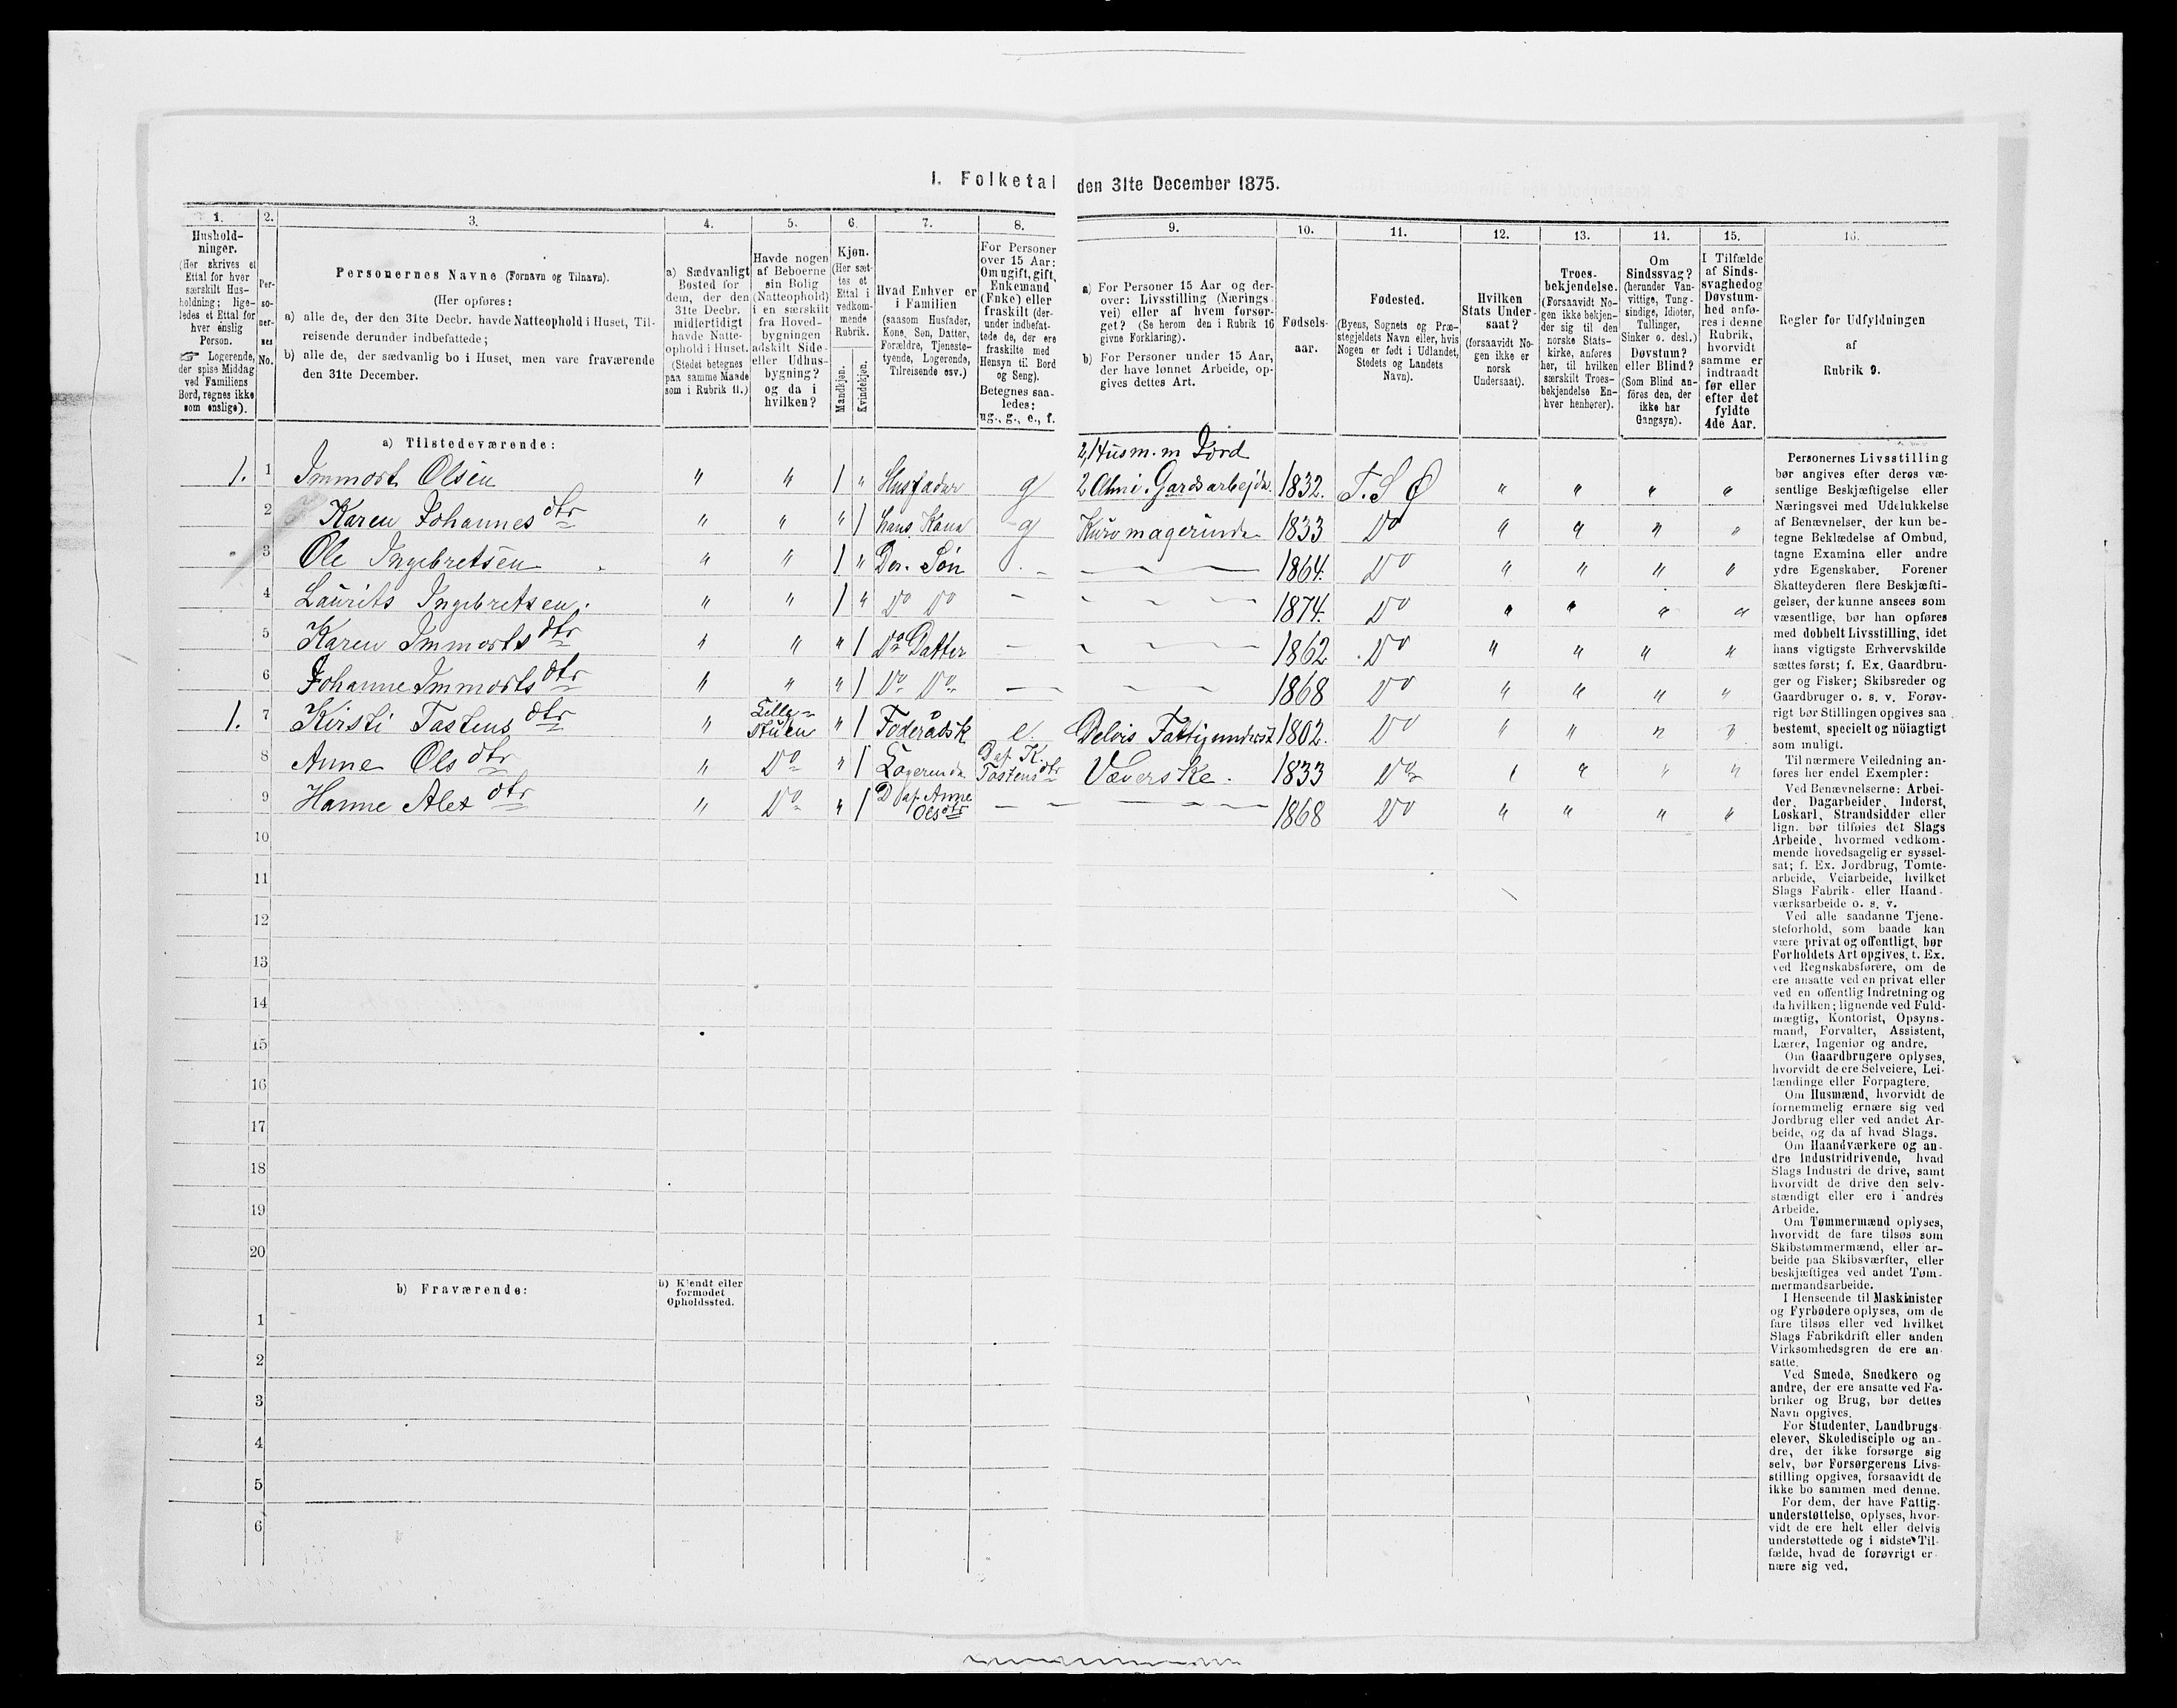 1. Folketal den 31te December 1875.
1.
Hushold-
ninger.
(Her skrives et
Ettal for hver
særskilt Hus-
holdning; lige-
ledes et Ettal for
hver enslig
Person.
☞ Logerende,
der spise Middag
ved Familiens
Bord, regnes ikke
som enslige).
2.
Per-
so-
ner-
nes
No.
3.
Personernes Navne (Fornavn og Tilnavn).
(Her opføres:
a) alle de, der den 31te Decbr. havde Natteophold i Huset, Til-
reisende derunder indbefattede;
b) alle de, der sædvanlig bo i Huset, men vare fraværende
den 31te December.
4.
a) Sædvanligt
Bosted for
dem, der den
31te Decbr.
midlertidigt
havde Natte-
ophold i Huset.
(Stedet betegnes
paa samme Maade
som i Rubrik 11.)
5.
Havde nogen
af Beboerne
sin Bolig
(Natteophold)
i en særskilt
fra Hoved-
bygningen
adskilt Side-
eller Udhus-
bygning?
og da i
hvilken?
6.
Kjøn.
(Her sæt-
tes et
Ettal i
vedkom-
mende
Rubrik.
Mandkjøn.
Kvindekjøn.
7.
Hvad Enhver er
i Familien
(saasom Husfader,
Kone, Søn, Datter,
Forældre, Tjeneste-
tyende, Logerende,
Tilreisende osv.)
8.
For Personer
over 15 Aar:
Om ugift, gift,
Enkemand
(Enke) eller
fraskilt (der-
under indbefat-
tede de, der ere
fraskilte med
Hensyn til Bord
og Seng).
Betegnes saa-
ledes:
ug., g., e., f.
9.
a) For Personer 15 Aar og der-
over: Livsstilling (Nærings-
vei) eller af hvem forsør-
get? (Se herom den i Rubrik 16
givne Forklaring).
b) For Personer under 15 Aar,
der have lønnet Arbeide, op-
gives dettes Art.
10.
Fødsels-
aar.
11.
Fødested.
(Byens, Sognets og Præ-
stegjeldets Navn eller, hvis
Nogen er født i Udlandet,
Stedets og Landets
Navn).
12.
Hvilken
Stats Under-
saat?
(forsaavidt No-
gen ikke er
norsk
Undersaat).
13.
Troes-
bekjendelse.
(Forsaavidt No-
gen ikke bekjen-
der sig til den
norske Stats-
kirke, anføres
her, til hvilken
særskilt Troes-
bekjendelse En-
hver henhører).
14.
Om
Sindssvag?
(herunder Van-
vittige, Tung-
sindige, Idioter,
Tullinger,
Sinker o. desl.)
Døvstum?
eller Blind?
(Som Blind an-
føres den, der
ikke har
Gangsyn).
15.
I Tilfælde
af Sinds-
svaghed og
Døvstum-
hed anfø-
res i denne
Rubrik,
hvorvidt
samme er
indtraadt
før eller
efter det
fyldte
4de Aar.
16.
Regler for Udfyldningen
af
Rubrik 9.
a) Tilstedeværende:
Husm. m Jord
1. 1 Immort Olsen " " 1 " Husfader g Gardsarbejder. 1832. T. S Ø " " " "
2 Karen Johannesdtr " " " 1 hans Kona g 1833 Do " " " "
3 Ole Ingebretsen " " 1 " Der. Søn 1864. Do " " " "
4 Laurits Ingebretsen. " " 1 " Do Do 1874. Do " " " "
5 Karen Immortsdtr " " " 1 Do Datter 1862 Do " " " "
6 Johanne Immortsdtr " " " 1 Do Do 1868 Do " " " "
1. 7 Kirsti Tostensdtr " Lille-stuen " 1 Føderådsk e. Delvis Fattigunderst 1802. Do " " " "
8 Anne Olsdtr " Do " 1 Logerende D af K. Tostensdtr Væverske. 1833 Do " " " "
9 Hanne Alexdtr " Do " 1 D af Anne Olsdtr 1868 Do " " " "
10
11
12
13
14
15
16
17
18
19
20
b) Fraværende:
b) Kjendt eller
formodet
Opholdssted.
1
2
3
4
5
6
Personernes Livsstilling
bør angives efter deres væ-
sentlige Beskjæftigelse eller
Næringsvei med Udelukkelse
af Benævnelser, der kun be-
tegne Beklædelse af Ombud,
tagne Examina eller andre
ydre Egenskaber. Forener
Skatteyderen flere Beskjæfti-
gelser, der kunne ansees som
væsentlige, bør han opføres
med dobbelt Livsstilling, idet
hans vigtigste Erhvervskilde
sættes først; f. Ex. Gaardbru-
ger og Fisker; Skibsreder og
Gaardbruger o. s. v. Forøv-
rigt bør Stillingen opgives saa
bestemt, specielt og nöiagtigt
som muligt.
Til nærmere Veiledning an-
føres her endel Exempler:
Ved Benævnelserne: Arbei-
der, Dagarbeider, Inderst,
Løskarl, Strandsidder eller
lign. bør tilføies det Slags
Arbeide, hvormed vedkom-
mende hovedsagelig er syssel-
sat; f. Ex. Jordbrug, Tomte-
arbeide, Veiarbeide, hvilket
Slags Fabrik- eller Haand-
værksarbeide o. s. v.
Ved alle saadanne Tjene-
steforhold, som baade kan
være privat og offentligt, bør
Forholdets Art opgives, t. Ex.
ved Regnskabsførere, om de
ere ansatte ved en privat eller
ved en offentlig Indretning og
da hvilken; lignende ved Fuld-
mægtig, Kontorist, Opsyns-
mand, Forvalter, Assistent,
Lærer, Ingeniør og andre.
Om Gaardbrugere oplyses,
hvorvidt de ere Selveiere, Lei-
lændinge eller Forpagtere.
Om Husmænd, hvorvidt de
fornemmelig ernære sig ved
Jordbrug eller ved andet Ar-
beide, og da af hvad Slags.
Om Haandværkere og an-
dre Industridrivende, hvad
Slags Industri de drive, samt
hvorvidt de drive den selv-
stændigt eller ere i andres
Arbeide.
Om Tømmermænd oplyses,
hvorvidt de fare tilsøs som
Skibstømmermænd, eller ar-
beide paa Skibsværfter, eller
beskjæftiges ved andet Tøm-
mermandsarbeide.
I Henseende til Maskinister
og Fyrbødere oplyses, om de
fare tilsøs eller ved hvilket
Slags Fabrikdrift eller anden
Virksomhedsgren de ere an-
satte.
Ved Smede, Snedkere og
andre, der ere ansatte ved Fa-
briker og Brug, bør dettes
Navn opgives.
For Studenter, Landbrugs-
elever, Skoledisciple og an-
dre, der ikke forsørge sig
selv, bør Forsørgerens Livs-
stilling opgives, forsaavidt de
ikke bo sammen med denne.
For dem, der have Fattig-
understøttelse, oplyses, hvor-
vidt de ere helt eller delvis
understøttede og i sidste Til-
fælde, hvad de forøvrigt er-
nære sig ved.